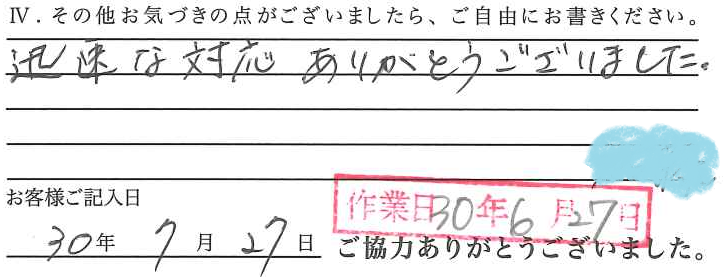 Ⅳ．その他お気づきの点がございましたら、ご自由にお書きください。
迅速な対応 ありがとうございました。
お客様ご記入日
作業日30年6月27日
30年 7月 27日
ご協力ありがとうございました。